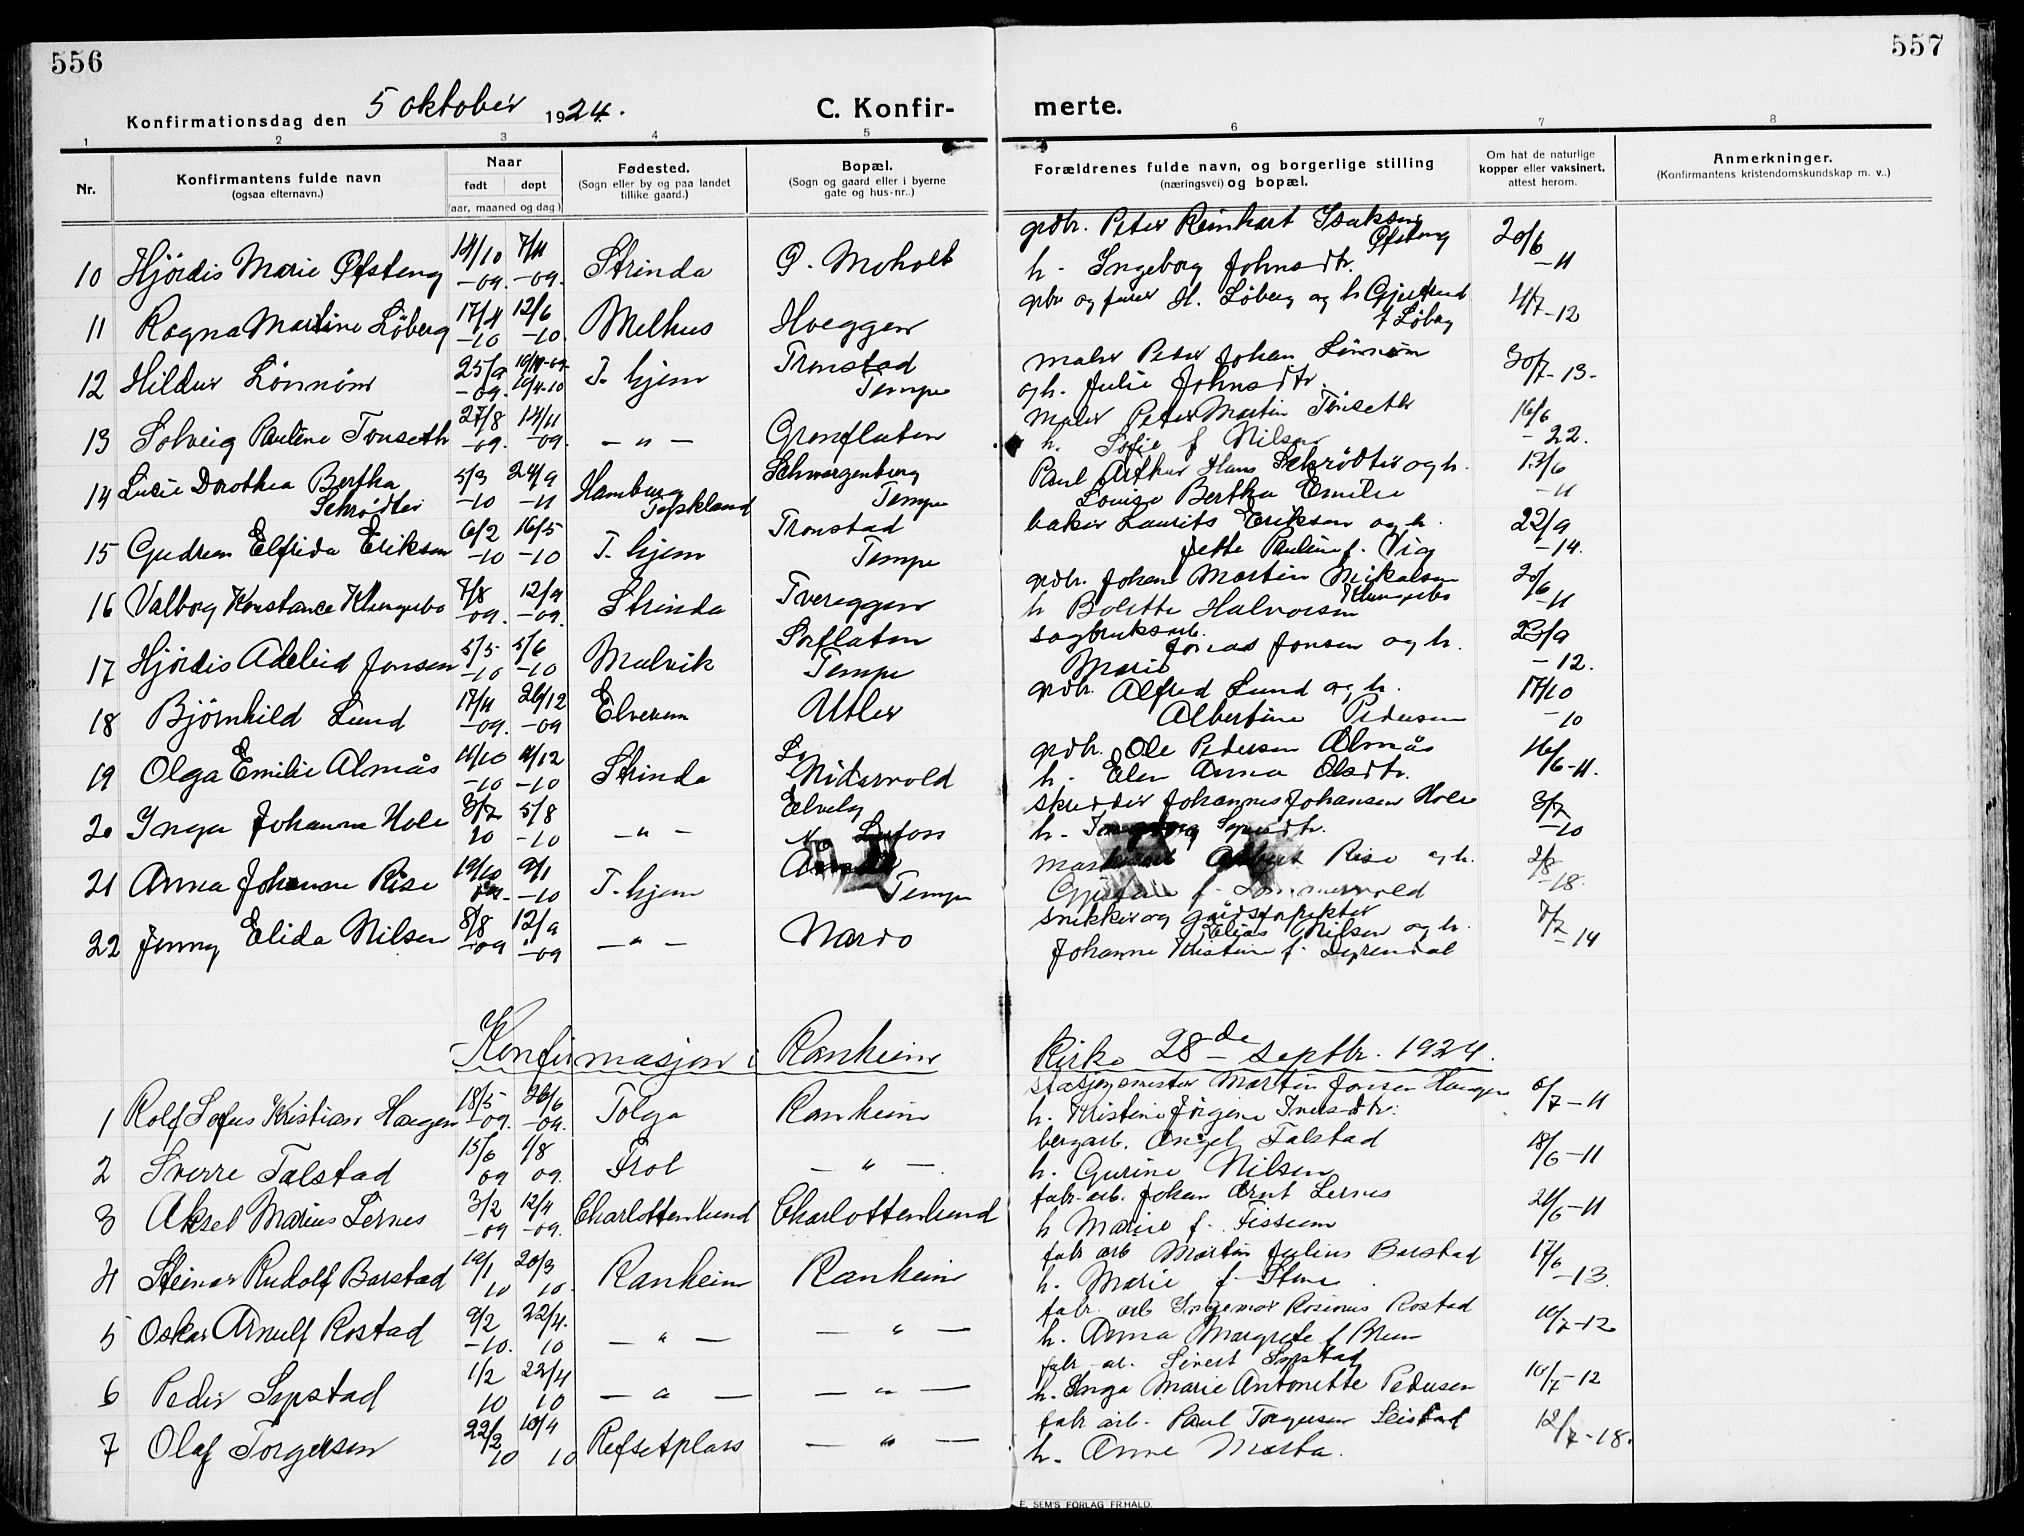 556
557
Konfirmationsdag den 5 oktober 1924.
C. Konfir- merte.
1 2 3 4 5 6 7 8
Nr.
Konfirmantens fulde navn
(ogsaa efternavn.)
Naar
født døpt
(aar, maaned og dag.)
Fødested.
(Sogn eller by og paa landet
tillike gaard.)
Bopæl.
(Sogn og gaard eller i byerne
gate og hus-nr.)
Forældrenes fulde navn, og borgerlige stilling
(næringsvei) og bopæl.
Om hat de naturlige
kopper eller vaksinert,
attest herom.
Anmerkninger.
(Konfirmantens kristendomskundskap m. v.)
grdbr. Peter Reinhart Isaksen
Øfsteng
10 Hjördis Marie Øfsteng 14/10 -09. 7/11 -09. Strinda Ø. Moholt h. Ingeborg Johnsdtr. 20/6 -11
11 Ragna Martine Löberg 17/4 -10 12/6 -10. Melhus Hoeggen
gbr og furer H. Löberg og h Gjertrud
f Löberg 4/7-12
12 Hildur Lönnöm 25/9 -09. 19/4-10 T. hjem Tronstad
Tempe
maler Peter Johan Lönnöm
og h. Julie Johnsdtr. 30/7-13-
13 Solveig Pauline Tonseth 27/8 -09. 14/11 -09. -"- Gronflaten
Maler Peter Martin Tönseth
h. Sofie f Nilsen 16/6 -22.
14 Lucie Dorothea Bertha
Schrödter 5/3 -10 24/9 -11 Hamburg
Tyskland Schwarzenberg
Tempe
Paul Arthur Hans Schrödter og h.
Louise Bertha Emilie 13/6 -11
15 Gudrun Elfrida Eriksen 6/2 -10 16/5 -10 T. hjem Tronstad
Tempe
baker Laurits Eriksen og h.
Jette Pauline f. Vig 22/9 -14.
16 Valborg Konstance Klungebo 7/8 -09. 12/9 -09. Strinda Tvereggen
grdbr. Johan Martin Mikalsen
Klungebo
h Bolette Halvorsen 20/6 -11
17 Hjördis Adeleid Jonsen 5/5 -10 5/6 -10 Malvik Sorflaten
Tempe
sagbruksarb.
Jonas Jonsen og h.
Marie 23/9 -12.
18 Björnhild Lund 17/11 -09. 26/12 -09 Elverum Utler
grdbr. Alfred Lund og h.
Albertine Pedersen 17/10 -10
19 Olga Emilie Almås 14/10 -10 4/12 -10 Strinda
Nidarvold
grdbr. Ole Pedersen Almås
h. Elen Anna Olsdtr. 16/6-11.
20 Inga Johanne Hole 3/7 10 5/8 -10 -"- Elvely
N. Lefoss
skredder Johannes Johansen Hole
h. Ingeborg 3/7 -10
21 Anna Johanne Rise 19/10 9/1 -10 T. hjem
Tempe
Rise og h.
f. 2/8 -18.
22 Jenny Elida Nilsen 8/8 -09 12/9 -09 -"- Nardo
snikker og
Elias Nilsen og h.
Johanne Kristine f. Dyrendal 7/2 -14
Konfirmasjon i Ranheim Kirke 28de septbr. 1924.
1 Rolf Sofus Kristian Haugen 18/5 -09. 26/6 -09. Tolga Ranheim
stasjonsmester Martin Jonsen Haugen
h. Kristine Jörgine Iversdtr. 6/7-11
2 Sverre Falstad 15/6 09 1/8 09. Frol -"-.
bergarb. Angel Falstad
h. Gurine Nilsen 18/6-11
3 Aksel Marius Lernes 3/2 -09 12/4 -09. Charlottenlund Charlottenlund
fabr-arb. Johan Arnt Lernes
h Marie f. Fissum 20/6-11
4 Steinar Rudolf Barstad 19/1 10 20/3 10. Ranheim Ranheim
fabr arb Martin Julius Barstad
h. Marie f. Stene 17/6 -13.
5 Oskar Arnulf Rostad 9/2 -10. 22/4. 10 -"- -"-
fabr. arb Ingemar Rosinus Rostad
h. Anna Margrete f Brun 10/7-12
6 Peder Sypstad 1/2 10 22/4 10 -"- -"-
fabr-ar. Sivert Sypstad
h. Inga Marie Antonette Pedersen 10/7-12
7 Olaf Torgersen 22/2 10 10/4 10 Refsetplass -"-
fabr arb. Paul Torgersen Leistad
h. Anne Marta. 12/7-18.
E. SEM'S FORLAG FR.HALD